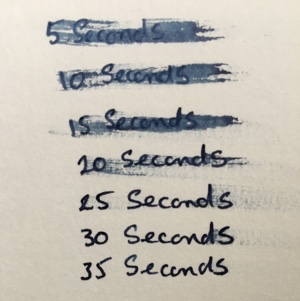 5 Seconds
10 Seconds
15 Seconds
20 Seconds
25 Seconds
30 Seconds
35 Seconds